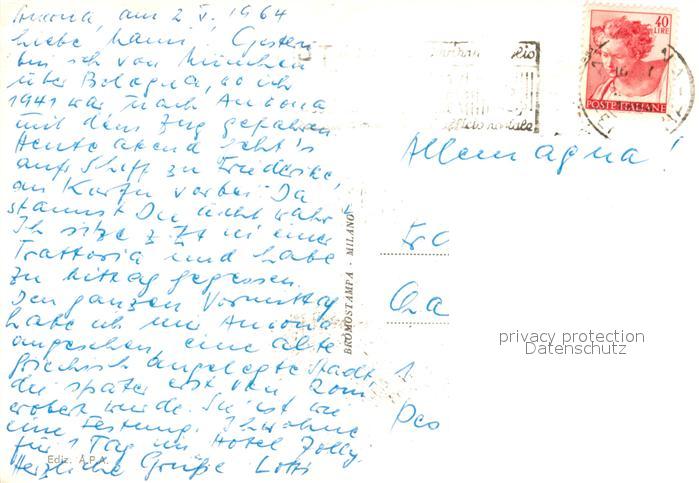 Ancona, am 2 V. 1964
Liebe Mami! Gestern
bin ich von München
über Bologna, wo ich
1941 war nach Ancona
mit dem Zug gefahren
Heute abend geht's
aufs Schiff zu Friederike,
an Korfu vorbei. Da
staunst Du nicht wahr?
Ich sitze z. Zt in einer
Trattoria und habe
zu Mittag gegessen.
Den ganzen Vormittag
habe ich mir Ancona
angesehen eine alte
griechisch angelegte Stadt,
die später erst von Rom
erobert wurde. Sie ist wie
eine Festung. Ich wohne
für 1 Tag im Hotel Jolly.
Herzliche Grüße Lotti
Ediz. A.P.A.
BROMOSTAMPA - MILANO
40
LIRE
POSTE ITALIANE
Allemagna!
Fr
1
privacy protection
Datenschutz